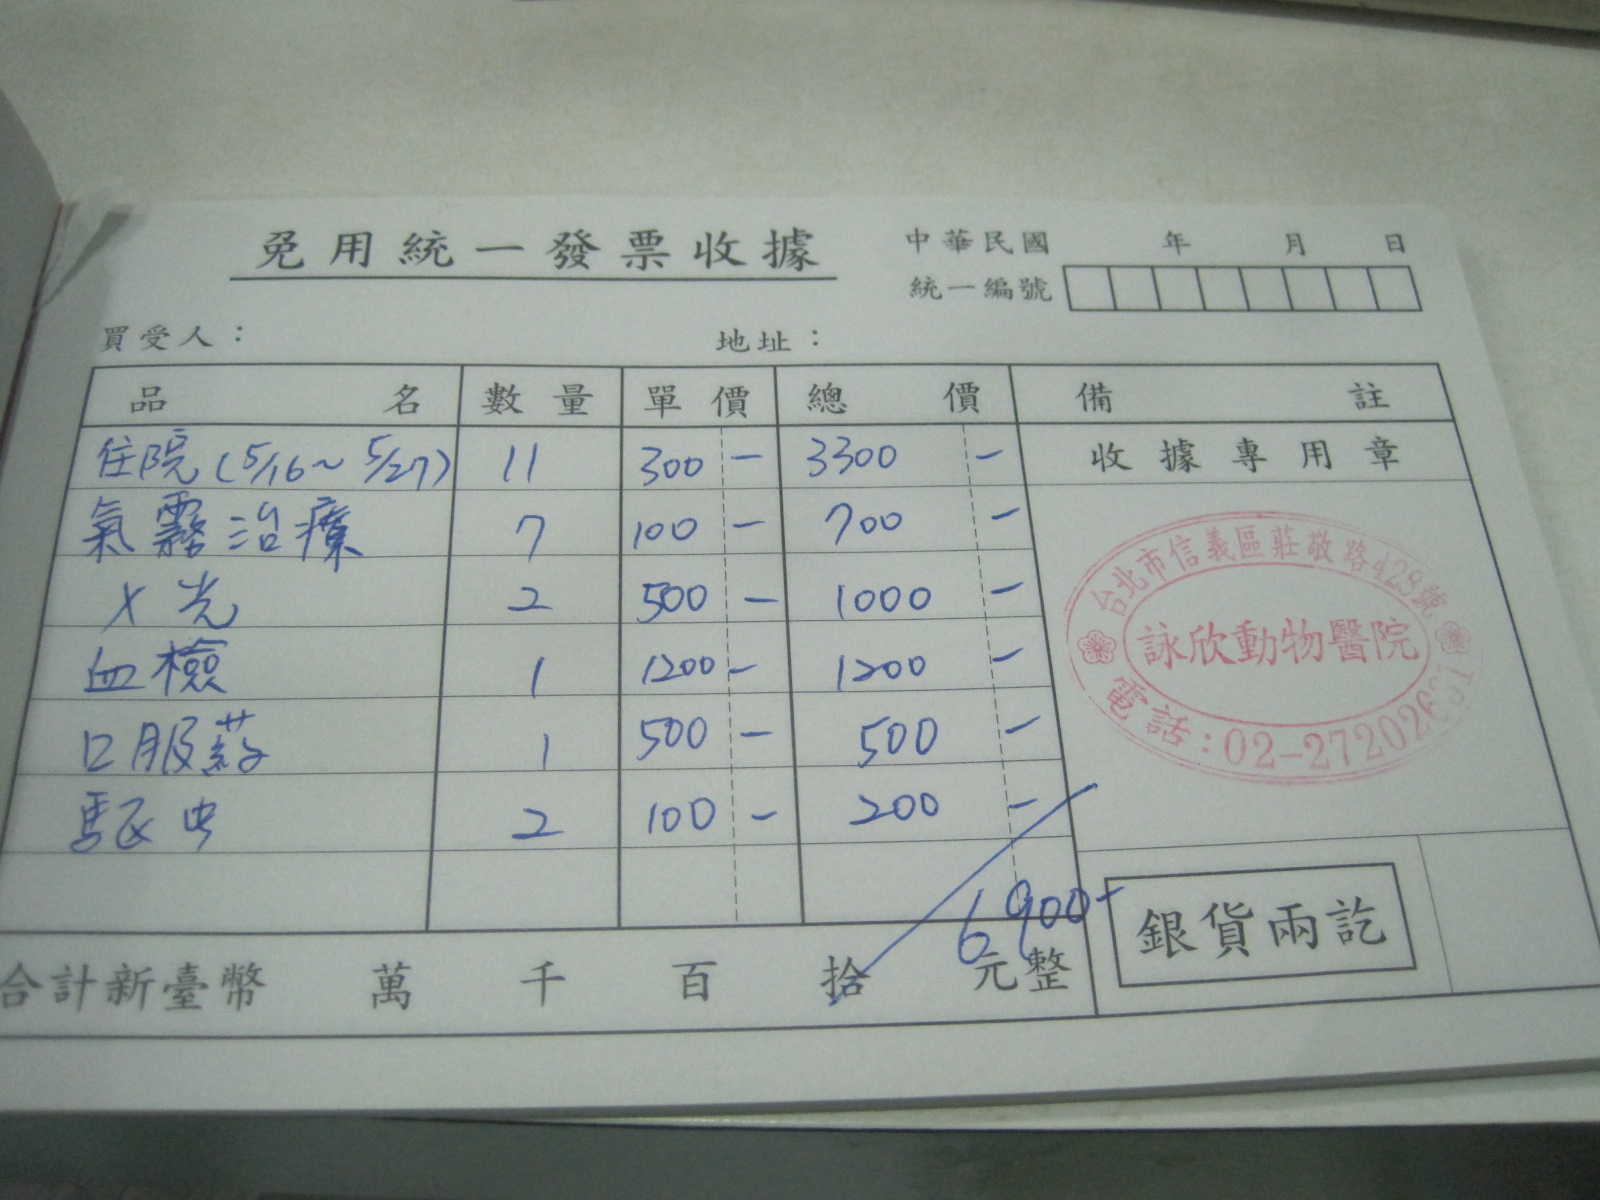 免用統一發票收據
中華民國 年 月 日
統一編號
買受人： 地址：
品名 數量 單價 總價 備註
住院(5/16~5/27) 11 300- 3300 - 收據專用章
氣霧治療 7 100- 700 -
X光 2 500- 1000 -
血檢 1 1200- 1200 -
口服葯 1 500- 500 -
驅虫 2 100- 200 -
台北市信義區莊敬路423號
詠欣動物醫院
電話：02-27202631
6900-
合計新臺幣 萬 千 百 拾 元整
銀貨兩訖